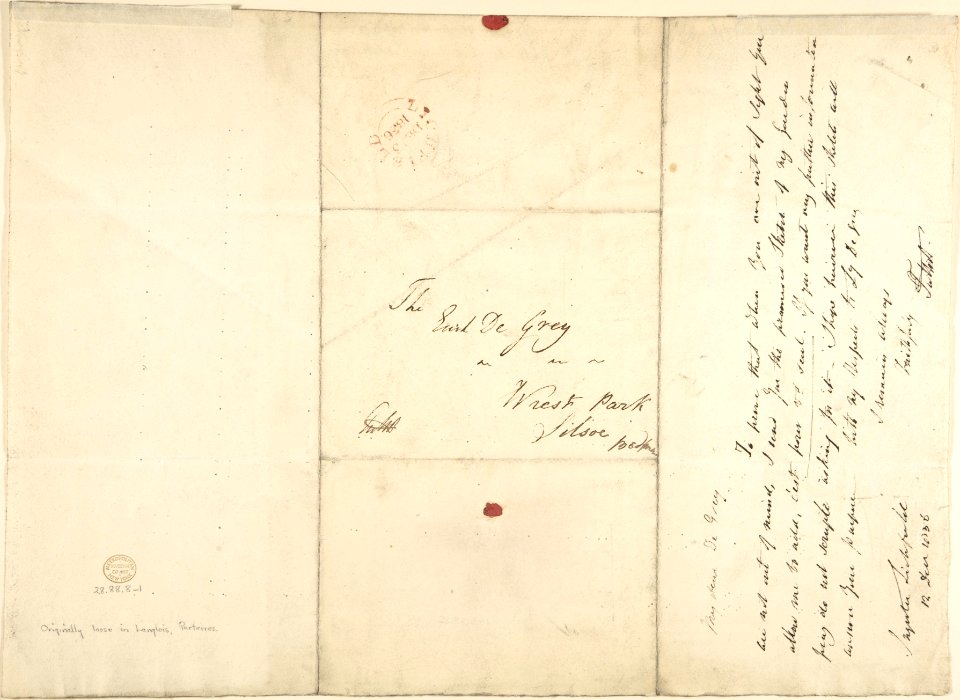 The
Earl De Grey
Wrest Park
Silsoe
My dear De Grey
To prove that when you are out of sight you
are not out of mind, I send you the promised Sketch of my Garden
allow me to add, c'est pour vs seul. If you want any further information
pray do not scruple asking for it. I hope however this sketch will
answer your purpose with my respects to Ly De Grey
I remain always
Faithfully
Talbot
Ingestre Lichfield
12 Decr 1836
28.88.8-1
Originally loose in Langlois, Parterres.